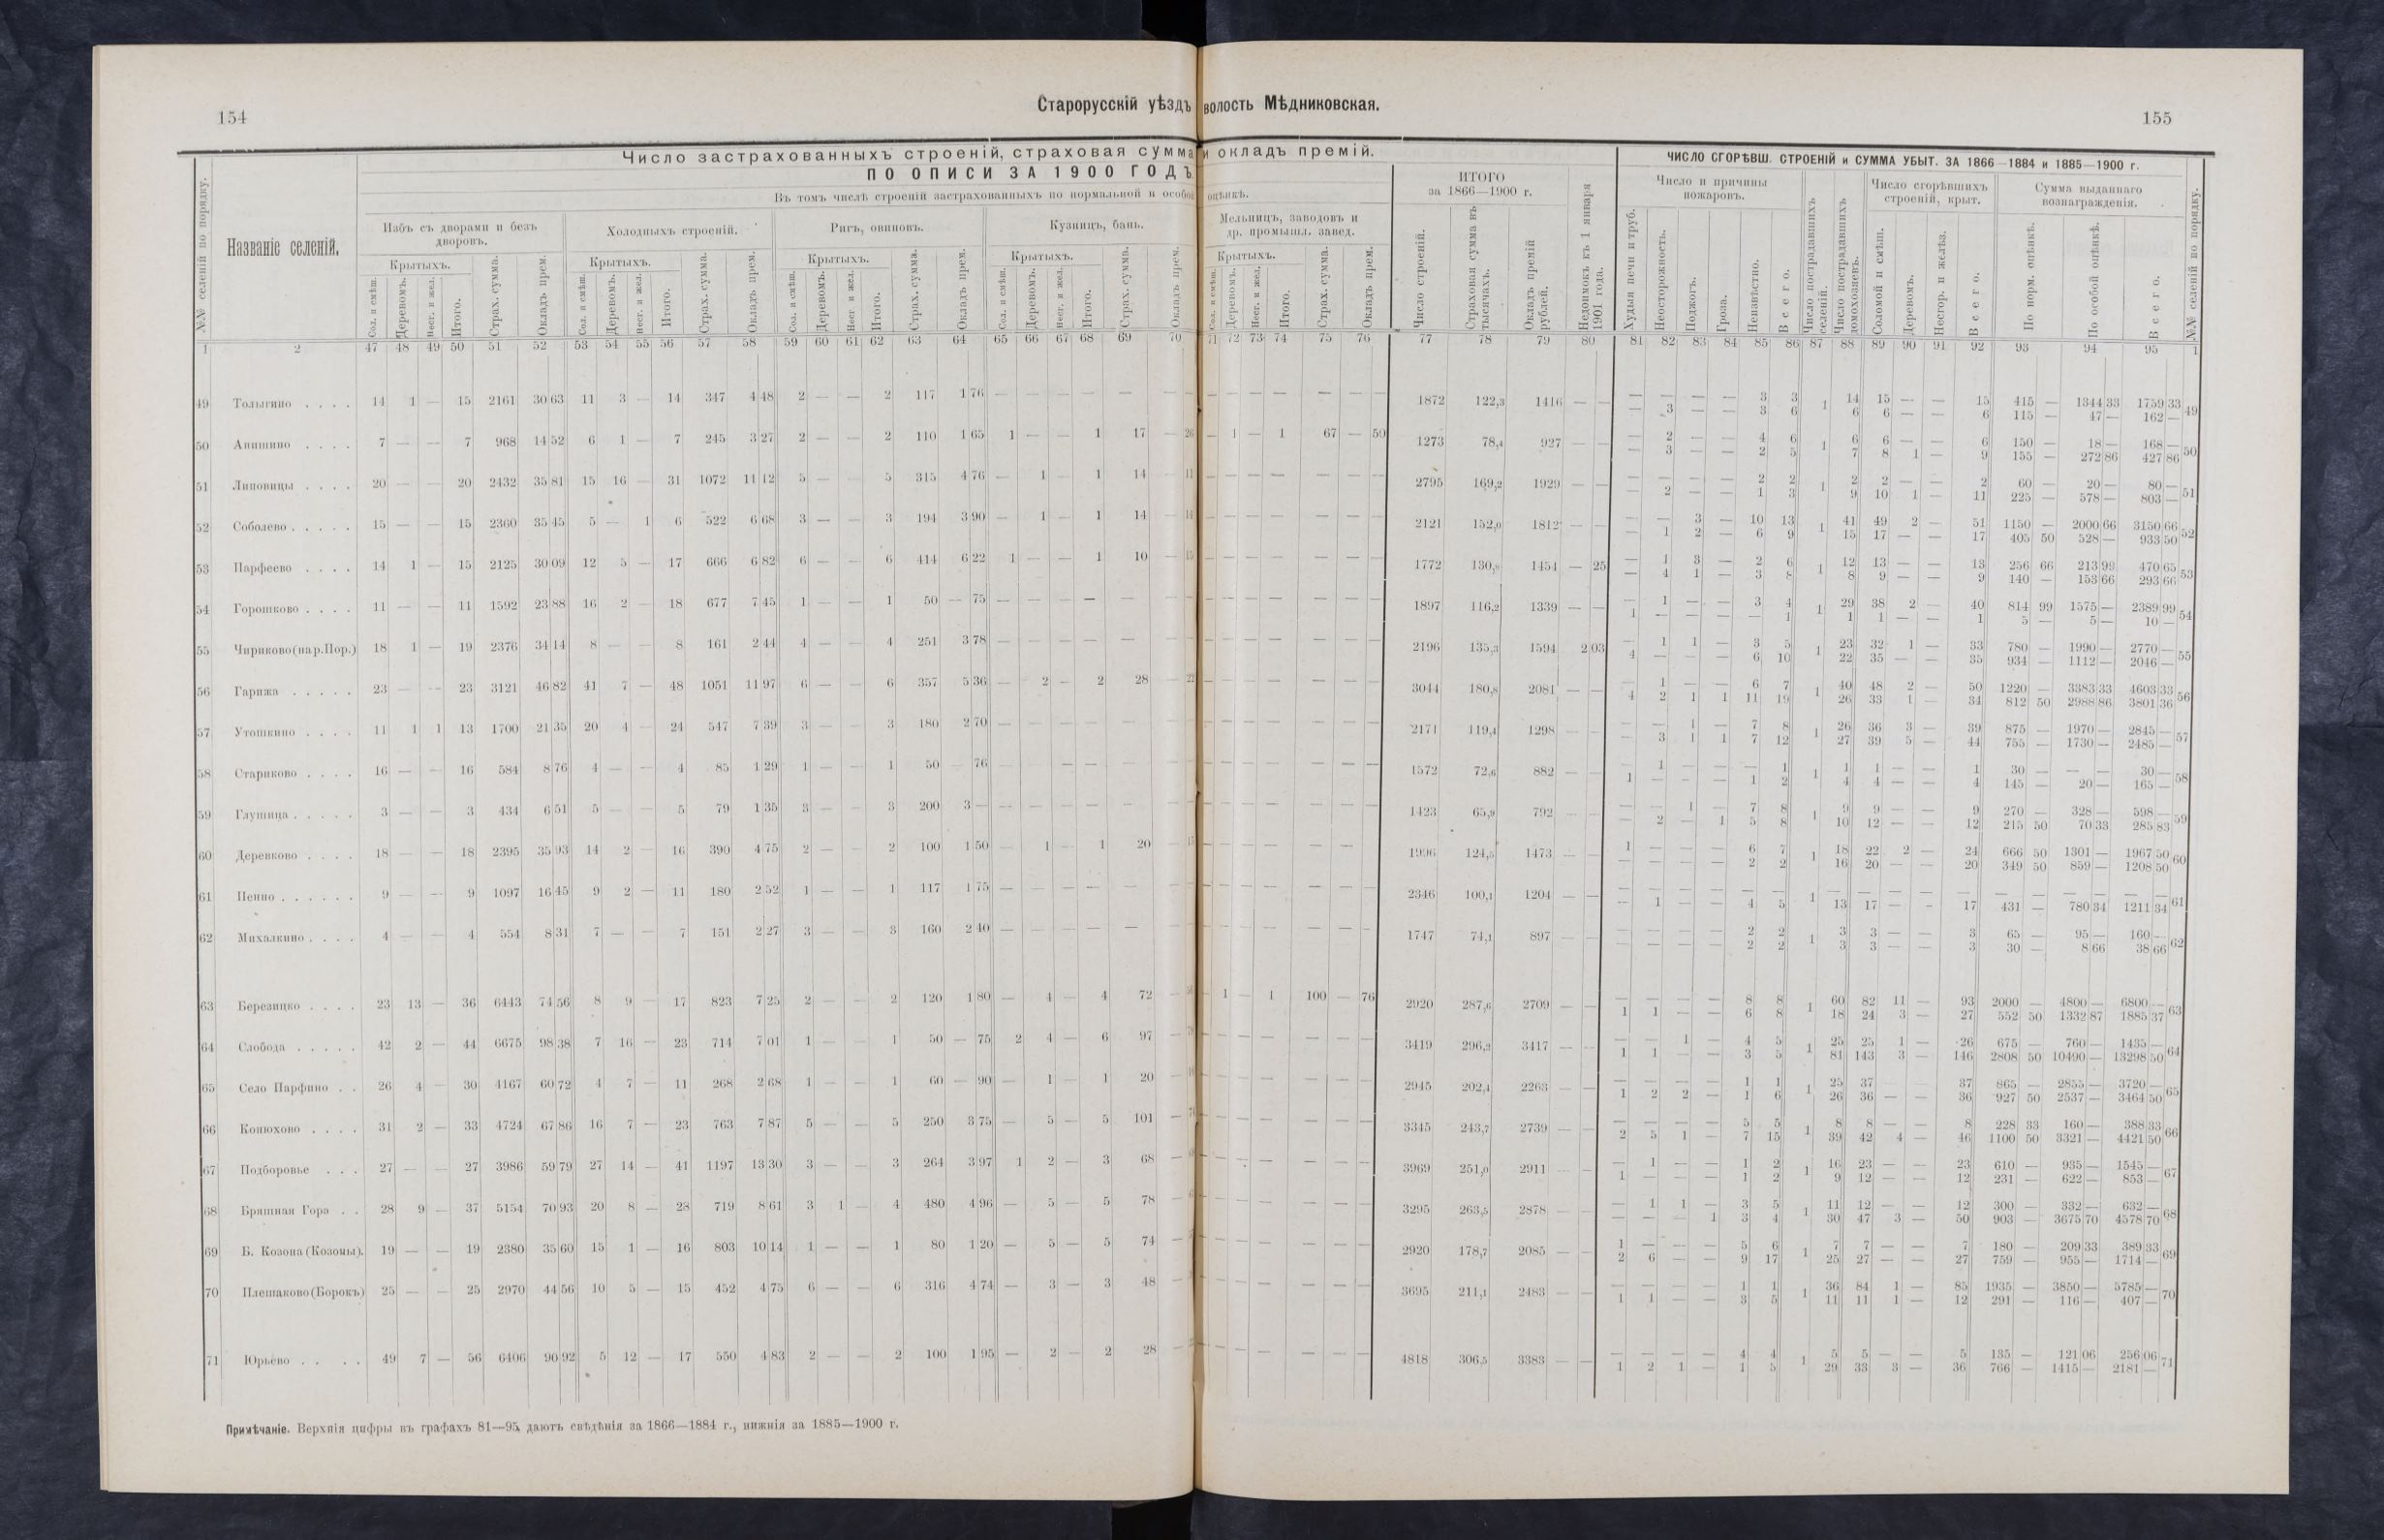 154
Старорусскій уѣздъ волость Мѣдниковская.
155
Число застрахованныхъ строеній, страховая сумма и окладъ премій.
ПО ОПИСИ ЗА 1900 ГОДЪ
Въ томъ числѣ строеній застрахованныхъ по нормальной и особой оцѣнкѣ.
ИТОГО за 1866—1900 г.
ЧИСЛО СГОРѢВШ. СТРОЕНІЙ и СУММА УБЫТ. ЗА 1866—1884 и 1885—1900 г.
№№ селеній по порядку.
Названіе селеній.
Избъ съ дворами и безъ дворовъ.
Холодныхъ строеній.
Ригъ, овиновъ.
Кузницъ, бань.
Мельницъ, заводовъ и др. промышл. завед.
Число и причины пожаровъ.
Число сгорѣвшихъ строеній, крыт.
Сумма выданнаго вознагражденія.
Крытыхъ. Крытыхъ. Крытыхъ. Крытыхъ. Крытыхъ.
Сол. и смѣш. Деревомъ. Нест. и жел. Итого. Страх. сумма. Окладъ прем.
Сол. и смѣш. Деревомъ. Нест. и жел. Итого. Страх. сумма. Окладъ прем.
Сол. и смѣш. Деревомъ. Нест. и жел. Итого. Страх. сумма. Окладъ прем.
Сол. и смѣш. Деревомъ. Нест. и жел. Итого. Страх. сумма. Окладъ прем.
Сол. и смѣш. Деревомъ. Нест. и жел. Итого. Страх. сумма. Окладъ прем.
Число строеній. Страховая сумма въ тысячахъ. Окладъ премій рублей. Недоимокъ къ 1 января 1901 года.
Худыя печи и труб. Неосторожность. Поджогъ. Гроза. Неизвѣстно. Всего.
Число пострадавшихъ селеній. Число пострадавшихъ домохозяевъ.
Соломой и смѣш. Деревомъ. Несгор. и желѣз. Всего.
По норм. оцѣнкѣ. По особой оцѣнкѣ. Всего. №№ селеній по порядку.
1 2 47 48 49 50 51 52 53 54 55 56 57 58 59 60 61 62 63 64 65 66 67 68 69 70 71 72 73 74 75 76 77 78 79 80 81 82 83 84 85 86 87 88 89 90 91 92 93 94 95 1
49 Толыгино . . . . 14 1 — 15 2161 30 63 11 3 — 14 347 4 48 2 — — 2 117 1 76 — — — — — — — — — — — — 1872 122,3 1416 — — — — — — 3 3 1 14 15 — — 15 415 — 1344 33 1759 33 49
— 3 — — 3 6 6 6 — — 6 115 — 47 — 162 —
50 Анишино . . . . 7 — — 7 968 14 52 6 1 — 7 245 3 27 2 — — 2 110 1 65 1 — — 1 17 — 26 — 1 — 1 67 — 50 1273 78,4 927 — — — 2 — — 4 6 1 6 6 — — 6 150 — 18 — 168 — 50
— 3 — — 2 5 7 8 1 — 9 155 — 272 86 427 86
51 Липовицы . . . . 20 — — 20 2432 35 81 15 16 — 31 1072 11 12 5 — — 5 315 4 76 — 1 — 1 14 — 11 — — — — — — 2795 169,2 1929 — — — — — — 2 2 1 2 2 — — 2 60 — 20 — 80 — 51
— 2 — — 1 3 9 10 1 — 11 225 — 578 — 803 —
52 Соболево . . . . . 15 — — 15 2360 35 45 5 — 1 6 522 6 68 3 — — 3 194 3 90 — 1 — 1 14 — 14 — — — — — — 2121 152,0 1812 — — — — 3 — 10 13 1 41 49 2 — 51 1150 — 2000 66 3150 66 52
— 1 2 — 6 9 15 17 — — 17 405 50 528 — 933 50
53 Парфеево . . . . 14 1 — 15 2125 30 09 12 5 — 17 666 6 82 6 — — 6 414 6 22 1 — — 1 10 — 15 — — — — — — 1772 130,8 1454 — 25 — 1 3 — 2 6 1 12 13 — — 13 256 66 213 99 470 65 53
— 4 1 — 3 8 8 9 — — 9 140 — 153 66 293 66
54 Горошково . . . . 11 — — 11 1592 23 88 16 2 — 18 677 7 45 1 — — 1 50 — 75 — — — — — — — — — — — — 1897 116,2 1339 — — — 1 — — 3 4 1 29 38 2 — 40 814 99 1575 — 2389 99 54
1 — — — — 1 1 1 — — 1 5 — 5 — 10 —
55 Чириково(на р.Пор.) 18 1 — 19 2376 34 14 8 — — 8 161 2 44 4 — — 4 251 3 78 — — — — — — — — — — — — 2196 135,3 1594 2 03 — 1 1 — 3 5 1 23 32 1 — 33 780 — 1990 — 2770 — 55
4 — — — 6 10 22 35 — — 35 934 — 1112 — 2046 —
56 Гарижа . . . . . 23 — — 23 3121 46 82 41 7 — 48 1051 11 97 6 — — 6 357 5 36 — 2 — 2 28 — 22 — — — — — — 3044 180,8 2081 — — — 1 — — 6 7 1 40 48 2 — 50 1220 — 3383 33 4603 33 56
4 2 1 1 11 19 26 33 1 — 34 812 50 2988 86 3801 36
57 Утошкино . . . . 11 1 1 13 1700 21 35 20 4 — 24 547 7 39 3 — — 3 180 2 70 — — — — — — — — — — — — 2171 119,4 1298 — — — — 1 — 7 8 1 26 36 3 — 39 875 — 1970 — 2845 — 57
— 3 1 1 7 12 27 39 5 — 44 755 — 1730 — 2485 —
58 Стариково . . . . 16 — — 16 584 8 76 4 — — 4 85 1 29 1 — — 1 50 — 76 — — — — — — — — — — — — 1572 72,6 882 — — — 1 — — — 1 1 1 1 — — 1 30 — — — 30 — 58
1 — — — 1 2 4 4 — — 4 145 — 20 — 165 —
59 Глушица . . . . . 3 — — 3 434 6 51 5 — — 5 79 1 35 3 — — 3 200 3 — — — — — — — — — — — — — 1423 65,9 792 — — — — 1 — 7 8 1 9 9 — — 9 270 — 328 — 598 — 59
— 2 — 1 5 8 10 12 — — 12 215 50 70 33 285 83
60 Деревково . . . . 18 — — 18 2395 35 93 14 2 — 16 390 4 75 2 — — 2 100 1 50 — 1 — 1 20 — 15 — — — — — — 1996 124,5 1473 — — 1 — — — 6 7 1 18 22 2 — 24 666 50 1301 — 1967 50 60
— — — — 2 2 16 20 — — 20 349 50 859 — 1208 50
61 Пенно . . . . . . 9 — — 9 1097 16 45 9 2 — 11 180 2 52 1 — — 1 117 1 75 — — — — — — — — — — — — 2346 100,1 1204 — — — — — — — — 1 — — — — — — — — — — — 61
— 1 — — 4 5 13 17 — — 17 431 — 780 34 1211 34
62 Михалкино . . . . 4 — — 4 554 8 31 7 — — 7 151 2 27 3 — — 3 160 2 40 — — — — — — — — — — — — 1747 74,1 897 — — — — — — 2 2 1 3 3 — — 3 65 — 95 — 160 — 62
— — — — 2 2 3 3 — — 3 30 — 8 66 38 66
63 Березицко . . . . 23 13 — 36 6443 74 56 8 9 — 17 823 7 25 2 — — 2 120 1 80 — 4 — 4 72 — — 1 — 1 100 — 76 2920 287,6 2709 — — — — — — 8 8 1 60 82 11 — 93 2000 — 4800 — 6800 — 63
1 1 — — 6 8 18 24 3 — 27 552 50 1332 87 1885 37
64 Слобода . . . . . 42 2 — 44 6675 98 38 7 16 — 23 714 7 01 1 — — 1 50 — 75 2 4 — 6 97 — — — — — — — 3419 296,2 3417 — — — — 1 — 4 5 1 25 25 1 — 26 675 — 760 — 1435 — 64
1 1 — — 3 5 81 143 3 — 146 2808 50 10490 — 13298 50
65 Село Парфино . . 26 4 — 30 4167 60 72 4 7 — 11 268 2 68 1 — — 1 60 — 90 — 1 — 1 20 — — — — — — — 2945 202,4 2263 — — — — — — 1 1 1 25 37 37 865 — 2855 — 3720 — 65
1 2 2 — 1 6 26 36 — — 36 927 50 2537 — 3464 50
66 Конюхово . . . . 31 2 — 33 4724 67 86 16 7 — 23 763 7 87 5 — — 5 250 3 75 — 5 — 5 101 — — — — — — — 3345 243,7 2739 — — — — — — 5 5 1 8 8 — — 8 228 33 160 — 388 33 66
2 5 1 — 7 15 39 42 4 — 46 1100 50 3321 — 4421 50
67 Подборовье . . . 27 — — 27 3986 59 79 27 14 — 41 1197 13 30 3 — — 3 264 3 97 1 2 — 3 68 — — — — — — — 3969 251,0 2911 — — — 1 — — 1 2 1 16 23 — — 23 610 — 935 — 1545 — 67
1 — — — 1 2 9 12 — — 12 231 — 622 — 853 —
68 Бряшная Гора . . 28 9 — 37 5154 70 93 20 8 — 28 719 8 61 3 1 — 4 480 4 96 — 5 — 5 78 — — — — — — — 3295 263,5 2878 — — — 1 1 — 3 5 1 11 12 — — 12 300 — 332 — 632 — 68
— — — 1 3 4 30 47 3 — 50 903 — 3675 70 4578 70
69 Б. Козона (Козоны). 19 — — 19 2380 35 60 15 1 — 16 803 10 14 1 — — 1 80 1 20 — 5 — 5 74 — — — — — — — 2920 178,7 2085 — — 1 — — — 5 6 1 7 7 — — 7 180 — 209 33 389 33 69
2 6 — — 9 17 25 27 — — 27 759 — 955 — 1714 —
70 Плешаково(Борокъ) 25 — — 25 2970 44 56 10 5 — 15 452 4 75 6 — — 6 316 4 74 — 3 — 3 48 — — — — — — — 3695 211,1 2483 — — — — — — 1 1 1 36 84 1 — 85 1935 — 3850 — 5785 — 70
1 1 — — 3 5 11 11 1 — 12 291 — 116 — 407 —
71 Юрьево . . . . 49 7 — 56 6406 90 92 5 12 — 17 550 4 83 2 — — 2 100 1 95 — 2 — 2 28 — — — — — — — 4818 306,5 3383 — — — — — — 4 4 1 5 5 — — 5 135 — 121 06 256 06 71
1 2 1 — 1 5 29 33 3 — 36 766 — 1415 — 2181 —
Примѣчаніе. Верхнія цифры въ графахъ 81—95 даютъ свѣдѣнія за 1866—1884 г., нижнія за 1885—1900 г.